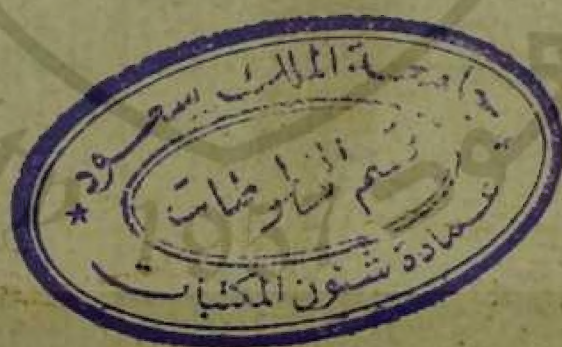 جامعة الملك سعود
قسم المخطوطات
عمادة شئون المكتبات
1957